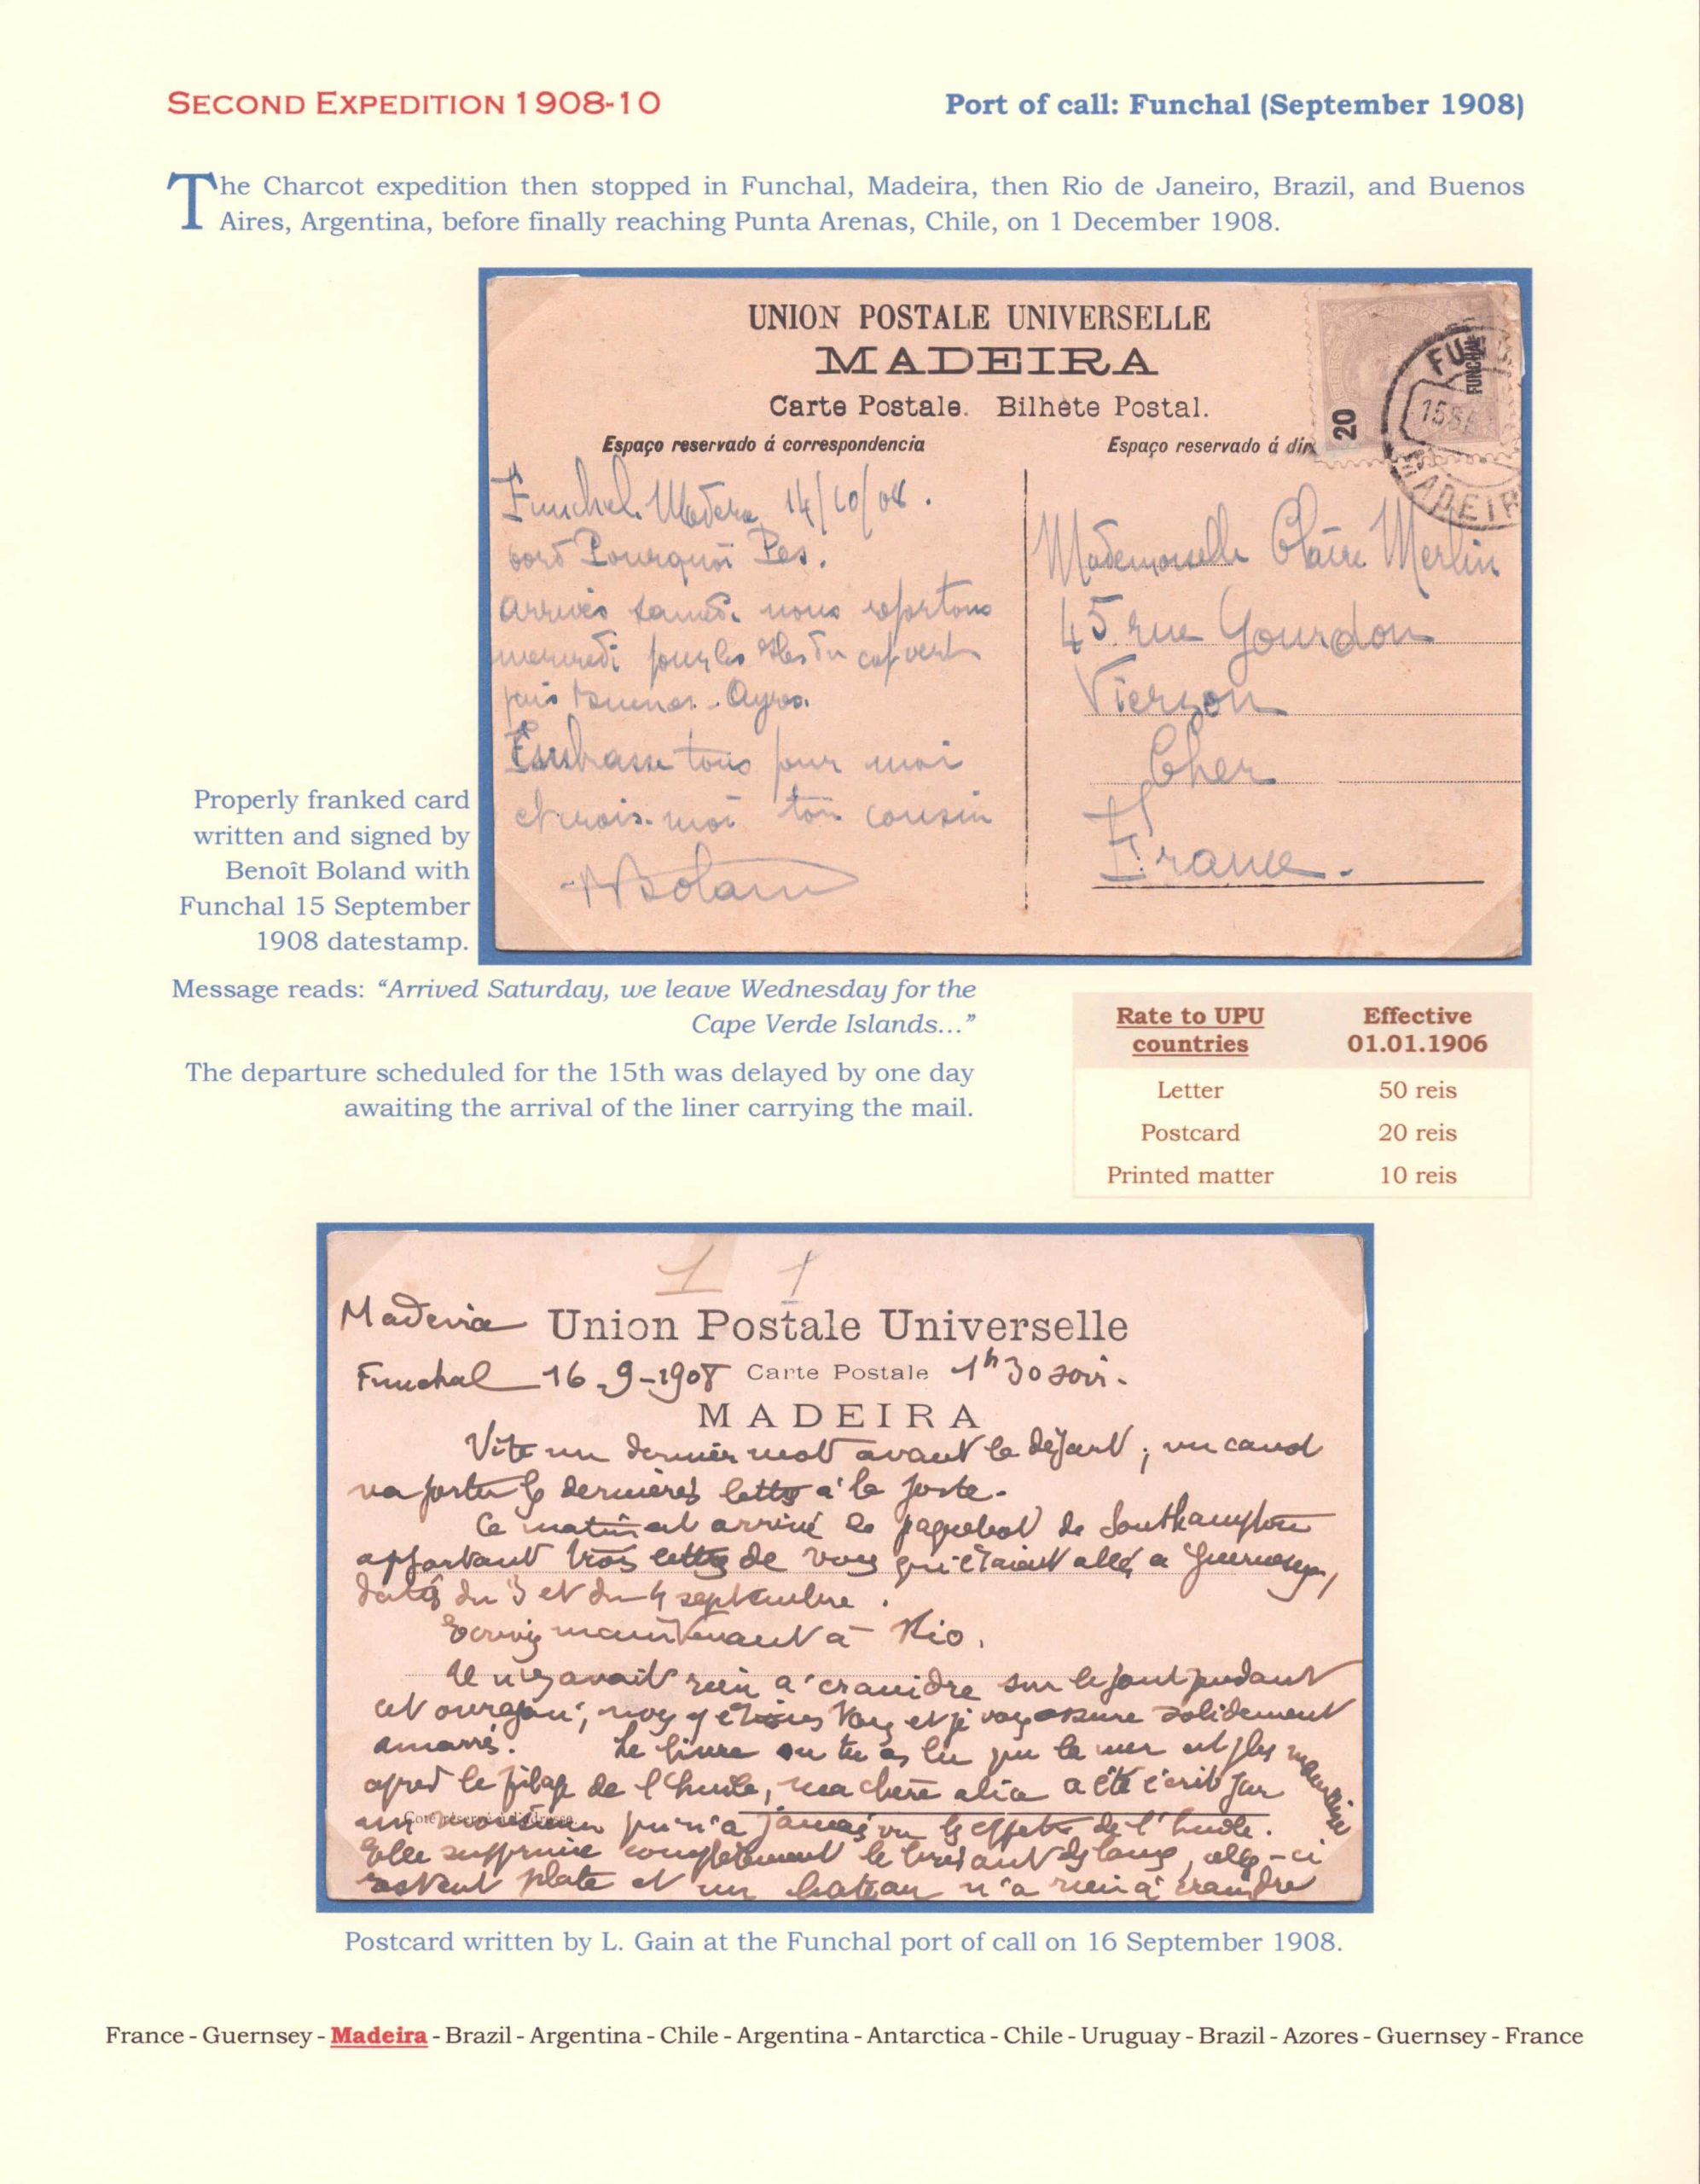 SECOND EXPEDITION 1908-10
Port of call: Funchal (September 1908)
The Charcot expedition then stopped in Funchal, Madeira, then Rio de Janeiro, Brazil, and Buenos
Aires, Argentina, before finally reaching Punta Arenas, Chile, on 1 December 1908.
UNION POSTALE UNIVERSELLE
MADEIRA
Carte Postale. Bilhete Postal.
Espaço reservado á correspondencia
Espaço reservado á dir
20
FUNCHAL
15 SE
MADEIR
Funchal. Madera 14/10/08.
bord Pourquoi Pas.
arrivés samedi nous repartons
mercredi pour les Iles du cap vert
puis Buenos-Ayres.
Embrasse tous pour moi
et crois-moi ton cousin
Boland
Mademoiselle Claire Merlin
45 rue Gourdon
Vierzon
Cher
France.
Properly franked card
written and signed by
Benoît Boland with
Funchal 15 September
1908 datestamp.
Message reads: “Arrived Saturday, we leave Wednesday for the
Cape Verde Islands…”
The departure scheduled for the 15th was delayed by one day
awaiting the arrival of the liner carrying the mail.
Rate to UPU countries Effective 01.01.1906
Letter 50 reis
Postcard 20 reis
Printed matter 10 reis
1 1
Madeira Union Postale Universelle
Funchal 16-9-1908 Carte Postale 1h30 soir.
MADEIRA
Vite un dernier mot avant le départ; un canot
va porter les dernières lettres à la poste.
Ce matin est arrivé le paquebot de Southampton
apportant trois lettres de vous qui étaient allées a Guernesey,
datées du 3 et du 4 septembre.
Ecrivez maintenant à Rio.
Il n'y avait rien à craindre sur le pont pendant
cet ouragan; nous y étions tous et je vous assure solidement
amarrés. Le livre ou tu as lu que la mer est plus mauvaise
après le filage de l'huile, ma chère a été écrit par
un monsieur qui n'a jamais vu les effets de l'huile.
Côté réservé à l'adresse
Elle supprime complètement le brisant des lames, elles-ci
restent plates et un bateau n'a rien à craindre
Postcard written by L. Gain at the Funchal port of call on 16 September 1908.
France - Guernsey - Madeira - Brazil - Argentina - Chile - Argentina - Antarctica - Chile - Uruguay - Brazil - Azores - Guernsey - France